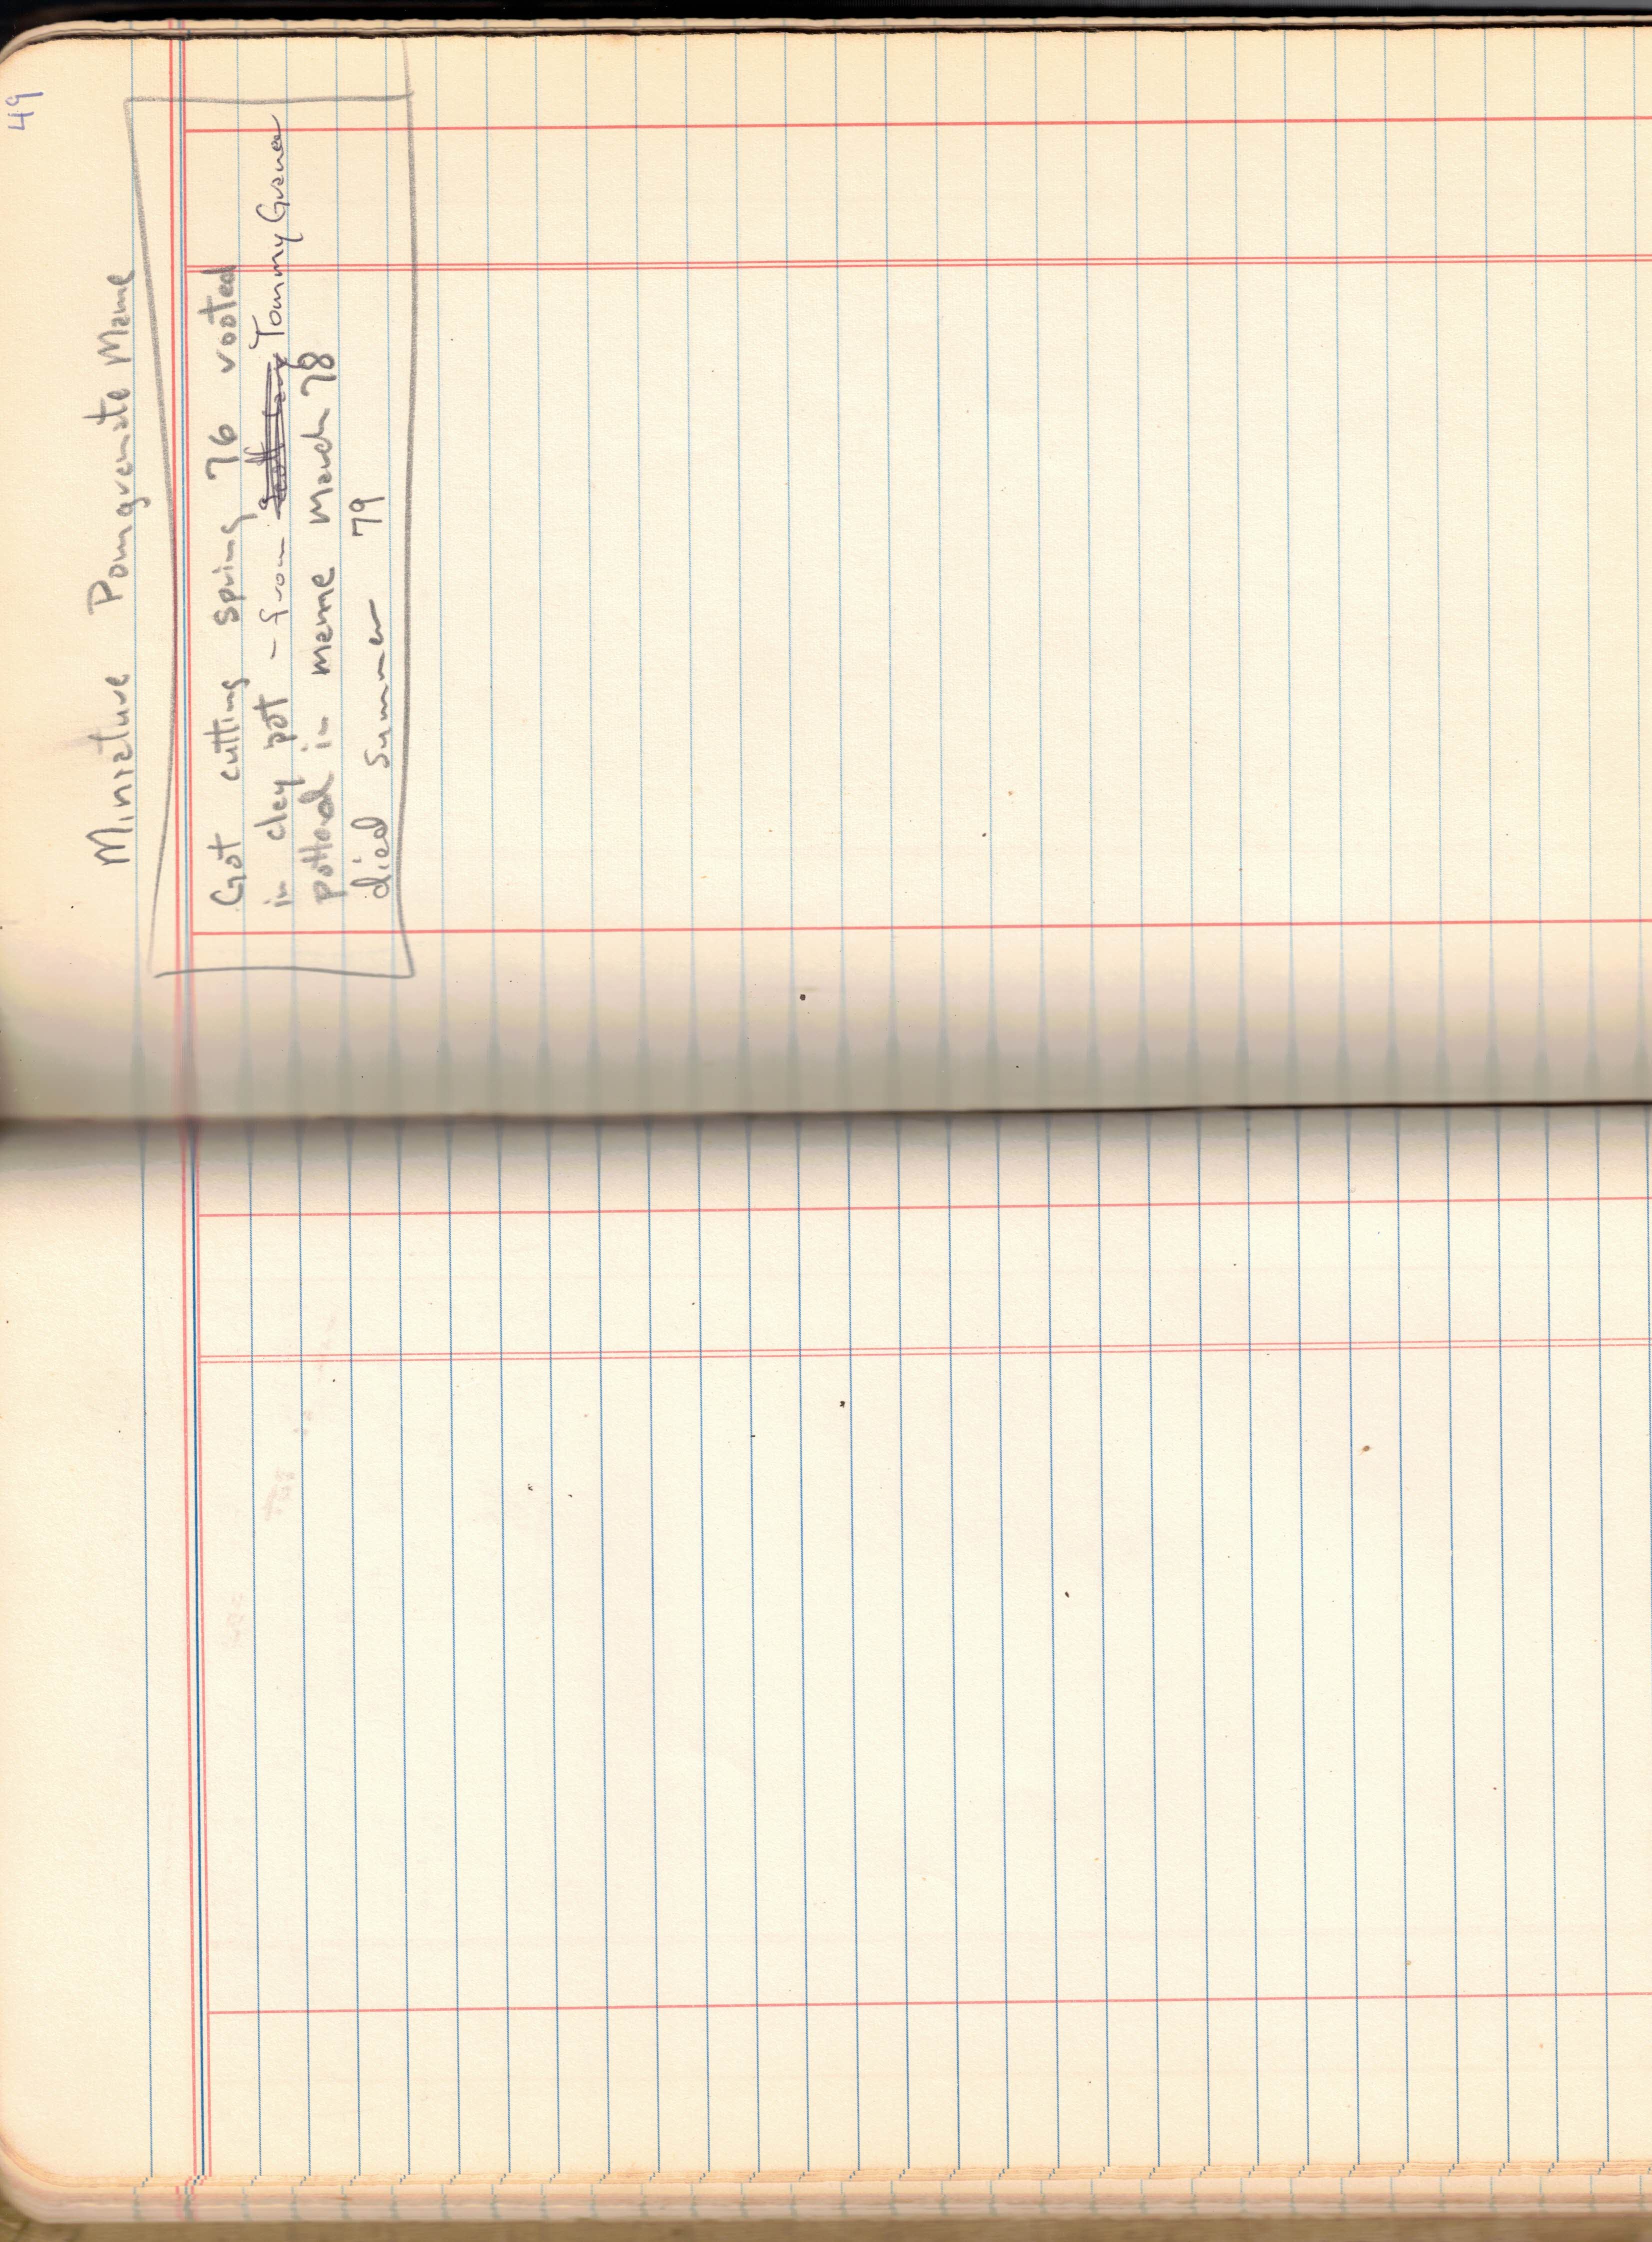 49
Miniature Pomgrenate Mame
Got cutting spring 76 rooted
in clay pot - from Tommy
potted in mame March 78
died summer 79